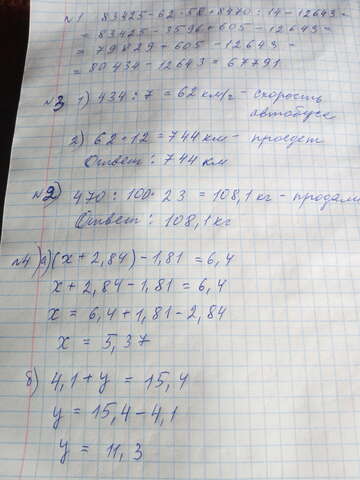 №1 83425-62·58+8470:14-12643=
= 83425-3596+605-12643=
= 79829+605-12643=
= 80434-12643=67791
№3 1) 434:7=62 км/ч - скорость
автобуса
2) 62·12=744 км - проедет
Ответ: 744 км
№2) 470:100·23=108,1 кг - продали
Ответ: 108,1 кг
№4) а) (x+2,84)-1,81=6,4
x+2,84-1,81=6,4
x = 6,4+1,81-2,84
x = 5,37
б) 4,1+y=15,4
y = 15,4-4,1
y = 11,3